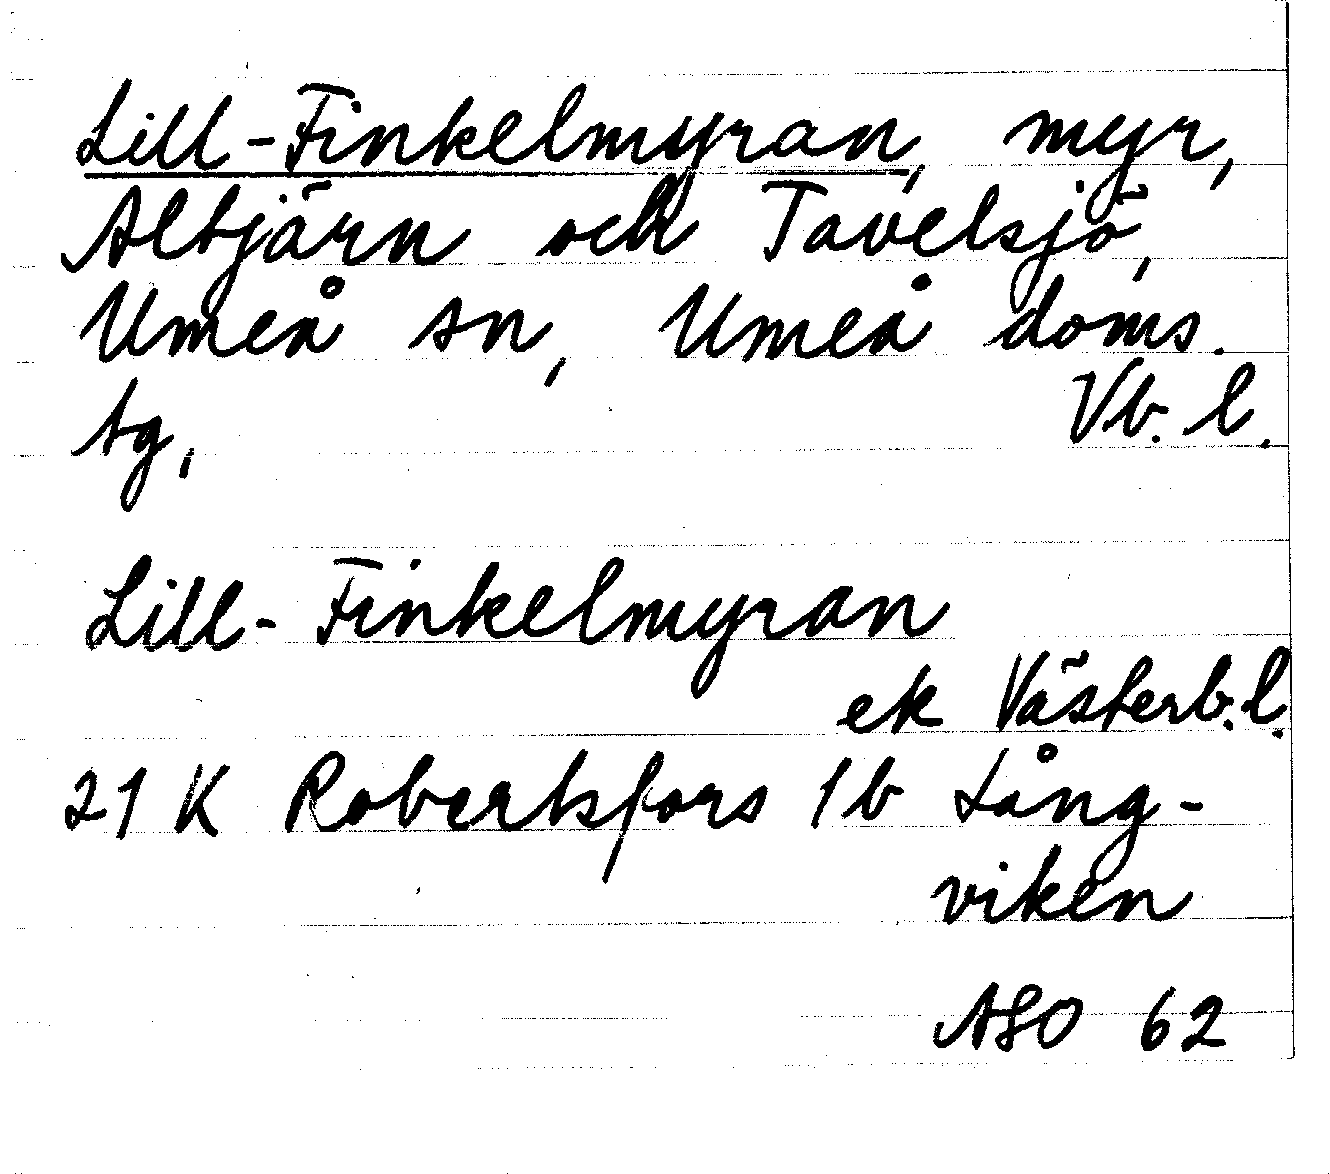 Lill-Finkelmyran, myr,
Altjärn och Tavelsjö,
Umeå sn, Umeå doms.
tg, Vb. l.
Lill-Finkelmyran
ek Västerb. l.
21 K Robertsfors 1b Lång-
viken
ASO 62